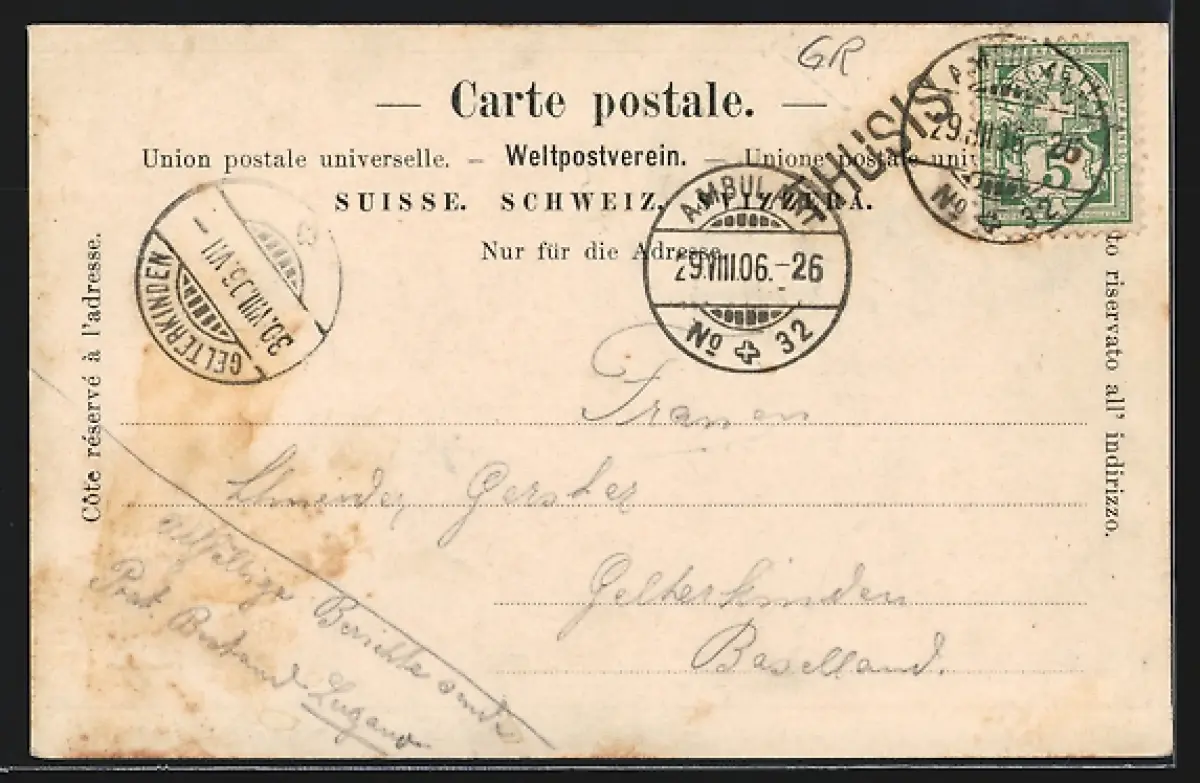 GR
— Carte postale. —
Union postale universelle. – Weltpostverein. – Unione postale univ
SUISSE. SCHWEIZ. SVIZZERA.
Nur für die Adresse.
THUSIS
AMBULANT
29.VIII.06.-26
No 32
AMBULANT
29.VIII.06.-26
No 32
5
GELTERKINDEN
30.VIII.06.VII–
Côte réservé à l'adresse.
to riservato all' indirizzo.
Frauen
Gerster
Gelterkinden
Baselland.
Allfällige Berichte sende
Post Lugano